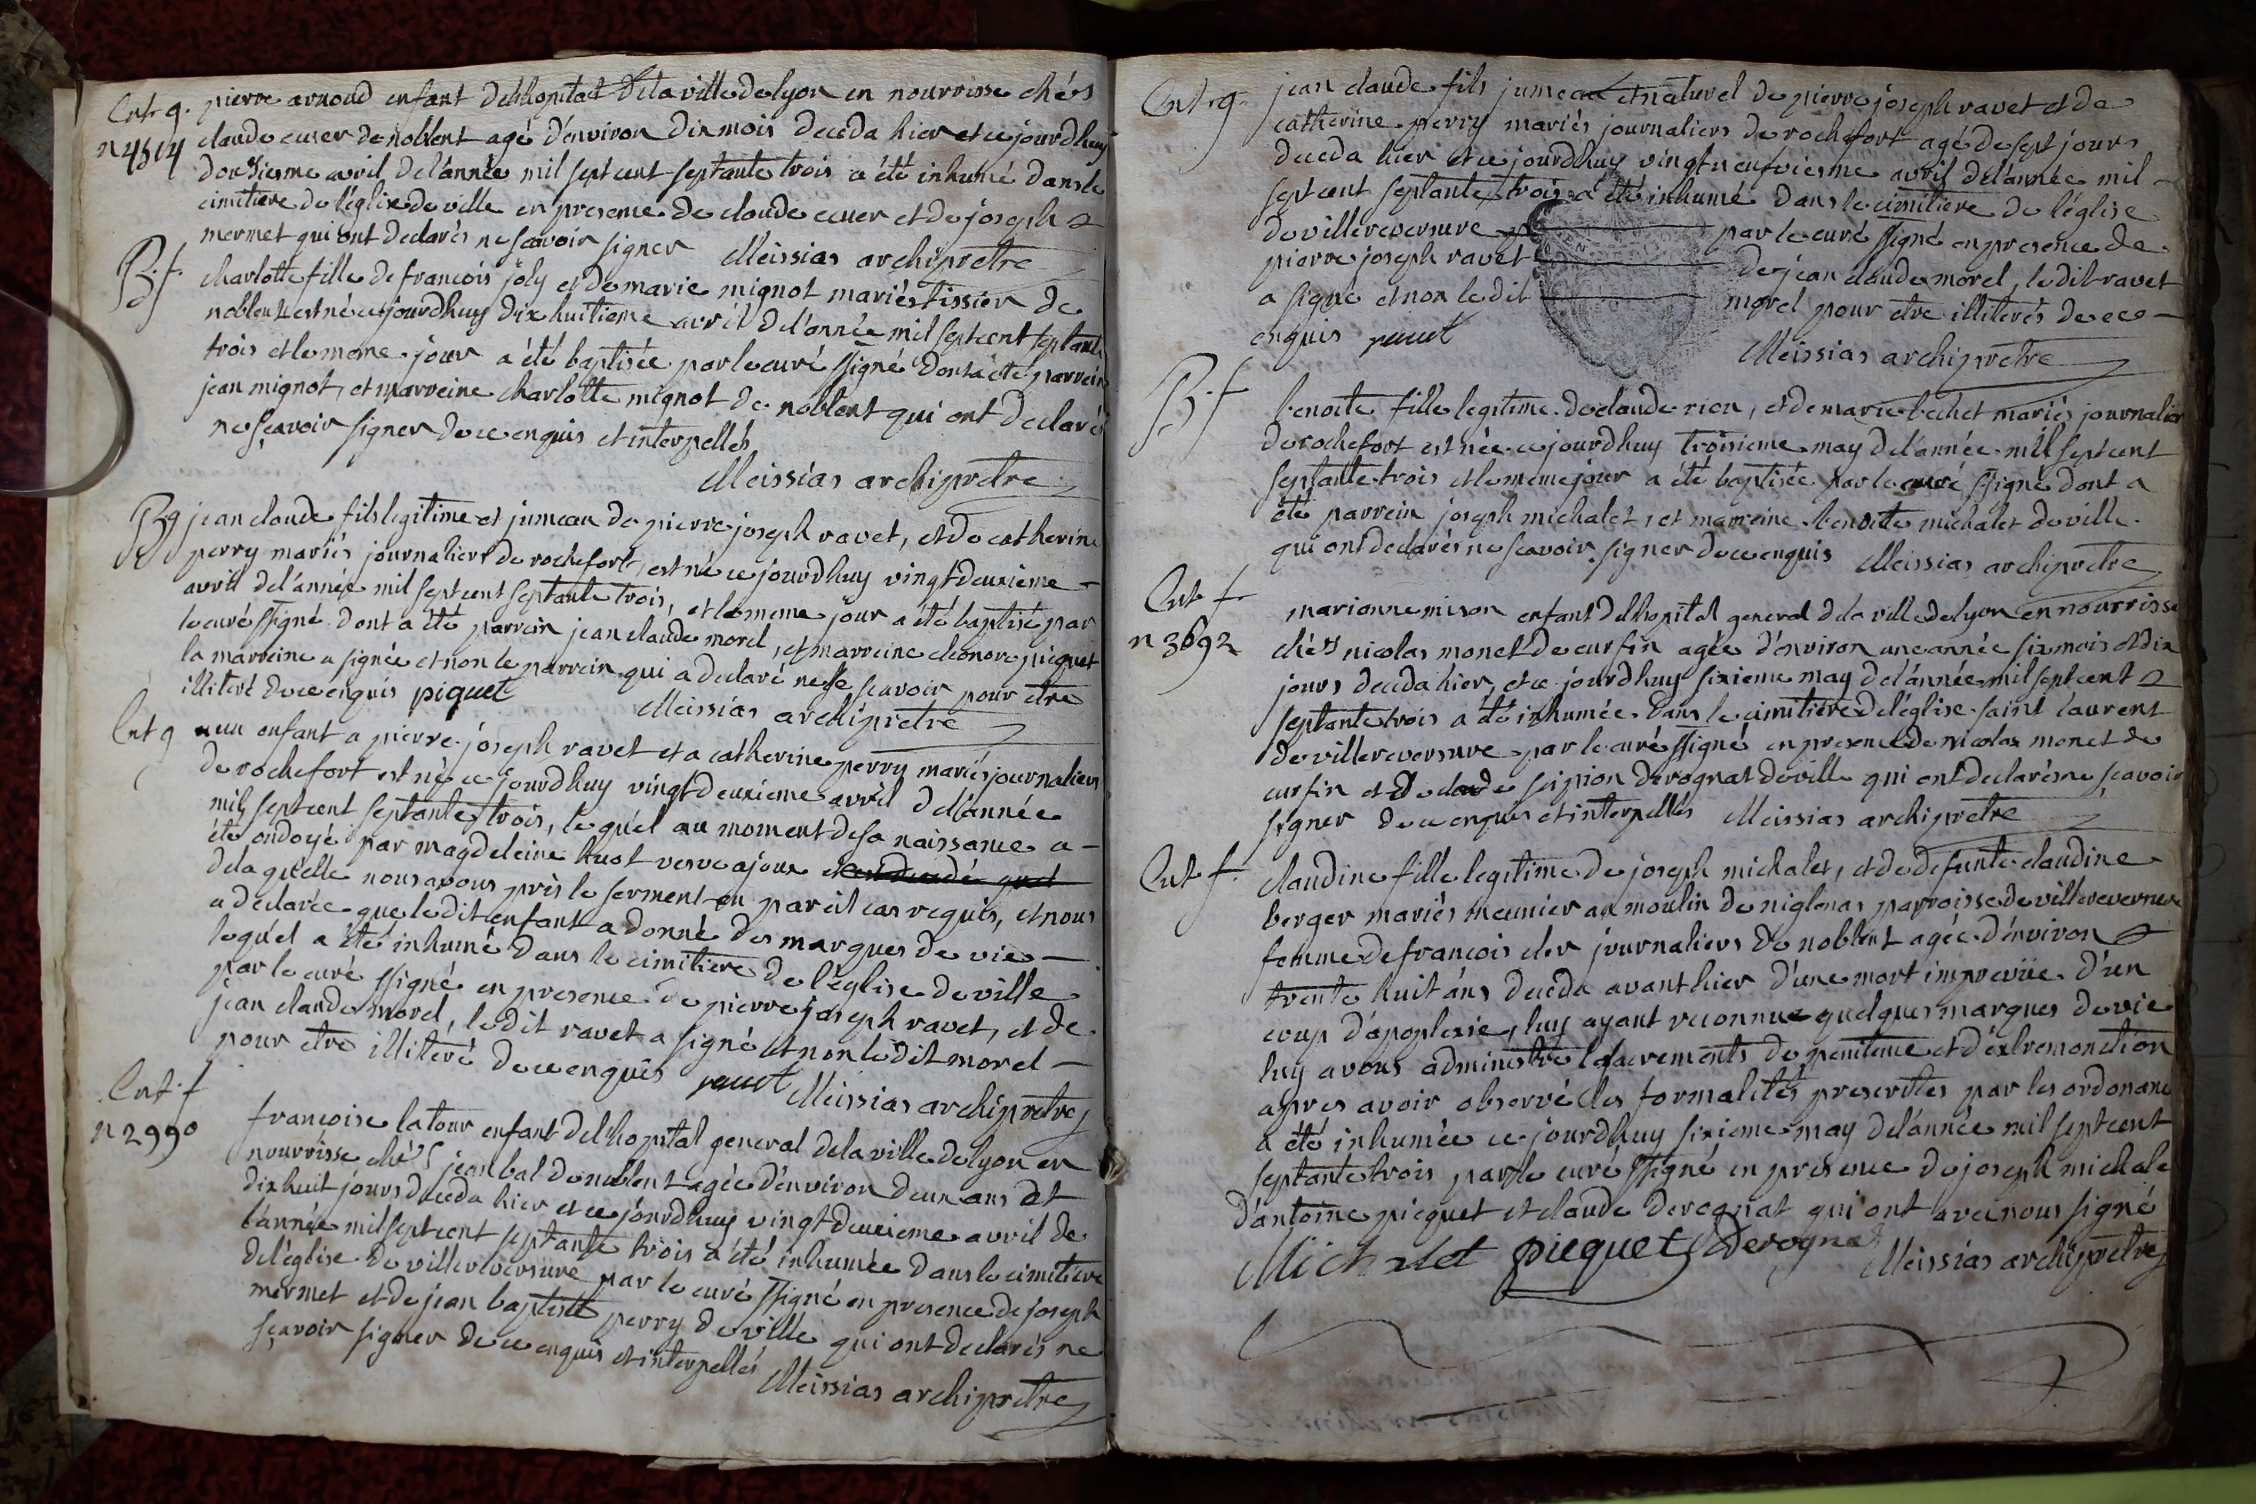 Ent. g. pierre arnoud enfant de l'hopital de la ville de lyon en nourrisse chés
n 4514 claude cuser de noblent agé d'environ dix mois deceda hier et ce jourdhuy
douziesme avril de l'année mil sept cent septante trois a été inhumé dans le
cimitiere de l'église de ville en presence de claude cuser et de joseph
mermet qui ont declarés ne scavoir signer Meissias archiprêtre
B. f. charlotte fille de francois joly et de marie mignot mariés tissier de
noblent est né ce jourdhuy dix huitieme avril de l'année mil sept cent septante
trois et le meme jour a été baptisée par le curé ssigné dont a été parrein
jean mignot, et marreine charlotte mignot de noblent qui ont declarés
ne sçavoir signer de ce enquis et interpellés
Meissias archiprêtre
B g jean claude fils legitime et jumeau de pierre joseph ravet, et de catherine
perry mariés journaliers de rochefort, est né ce jourdhuy vingt deuxieme
avril de l'année mil sept cent septante trois, et le meme jour a été baptisé par
le curé ssigné dont a été parrein jean claude morel, et marreine eleonore picquet
la marreine a signée et non le parrein qui a declaré ne le scavoir pour etre
illiteré de ce enquis piquet Meissias archiprêtre
Ent g un enfant a pierre joseph ravet et a catherine perry mariés journaliers
de rochefort est né ce jourdhuy vingt deuxieme avril de l'année
mil sept cent septante trois, lequel au moment de sa naissance a
été ondoyé par magdeleine huot vesve ajoux
de la quelle nous avons près le serment en pareil cas requis, et nous
a declarée que le dit enfant a donné des marques de vie
lequel a été inhumé dans le cimitiere de l'église de ville
par le curé ssigné en presence de pierre joseph ravet, et de
jean claude morel, le dit ravet a signé et non le dit morel
pour etre illiteré de ce enquis ravet Meissias archiprêtre
Ent. f
n 2990 francoise latour enfant de l'hopital general de la ville de lyon en
nourrisse chés jean bal de noblent agée d'environ deux ans et
dix huit jours deceda hier et ce jourdhuy vingt deuxieme avril de
l'année mil sept cent septante trois a été inhumée dans le cimetiere
de l'église de villereversure par le curé ssigné en presence de joseph
mermet et de jean baptiste perry de ville qui ont declarés ne
sçavoir signer de ce enquis et interpellés
Meissias archiprêtre
Ent. g. jean claude fils jumeau et naturel de pierre joseph ravet et de
catherine perry mariés journaliers de rochefort agé de sept jours
deceda hier et ce jourdhuy vingt neufviesme avril de l'année mil
sept cent septante trois a été inhumé dans le cimitiere de l'église
de villereversure par le curé ssigné en presence de
pierre joseph ravet de jean claude morel, le dit ravet
a signé et non le dit morel pour etre illiterés de ce
enquis ravet Meissias archiprêtre
B. f benoite fille legitime de claude rion, et de marie bechet mariés journalier
de rochefort est née ce jourdhuy troisieme may de l'année mil sept cent
septante trois et le meme jour a été baptisée par le curé ssigné dont a
été parrein joseph michalet, et marreine benoite michalet de ville
qui ont declarés ne scavoir signer de ce enquis Meissias archiprêtre
Ent. f. marianne mison enfant de l'hopital general de la ville de lyon en nourrisse
n 3692 chés nicolas monet de curfin agée d'environ une année six mois et dix
jours deceda hier, et ce jourdhuy sixieme may de l'année mil sept cent
septante trois a été inhumée dans le cimitiere de l'église saint laurent
de villereversure par le curé ssigné en presence de nicolas monet de
curfin et de claude derognat de ville qui ont declarés ne sçavoir
signer de ce enquis et interpellés Meissias archiprêtre
Ent. f. claudine fille legitime de joseph michalet, et de defunte claudine
berger mariés meunier au moulin de niglenas parroisse de villereversure
femme de francois cler journaliers de noblent agée d'environ
trente huit ans deceda avant hier d'une mort imprevüe d'un
coup d'apoplexie, luy ayant reconnu quelques marques de vie
luy avons administré les sacrements de penitence et d'extremonction
apres avoir observé les formalités prescrites par les ordonance
a été inhumée ce jourdhuy sixieme may de l'année mil sept cent
septante trois par le curé ssigné en presence de joseph michalet
d'antoine picquet et claude derognat qui ont avec nous signé
Michalet picquet Derognat Meissias archiprêtre